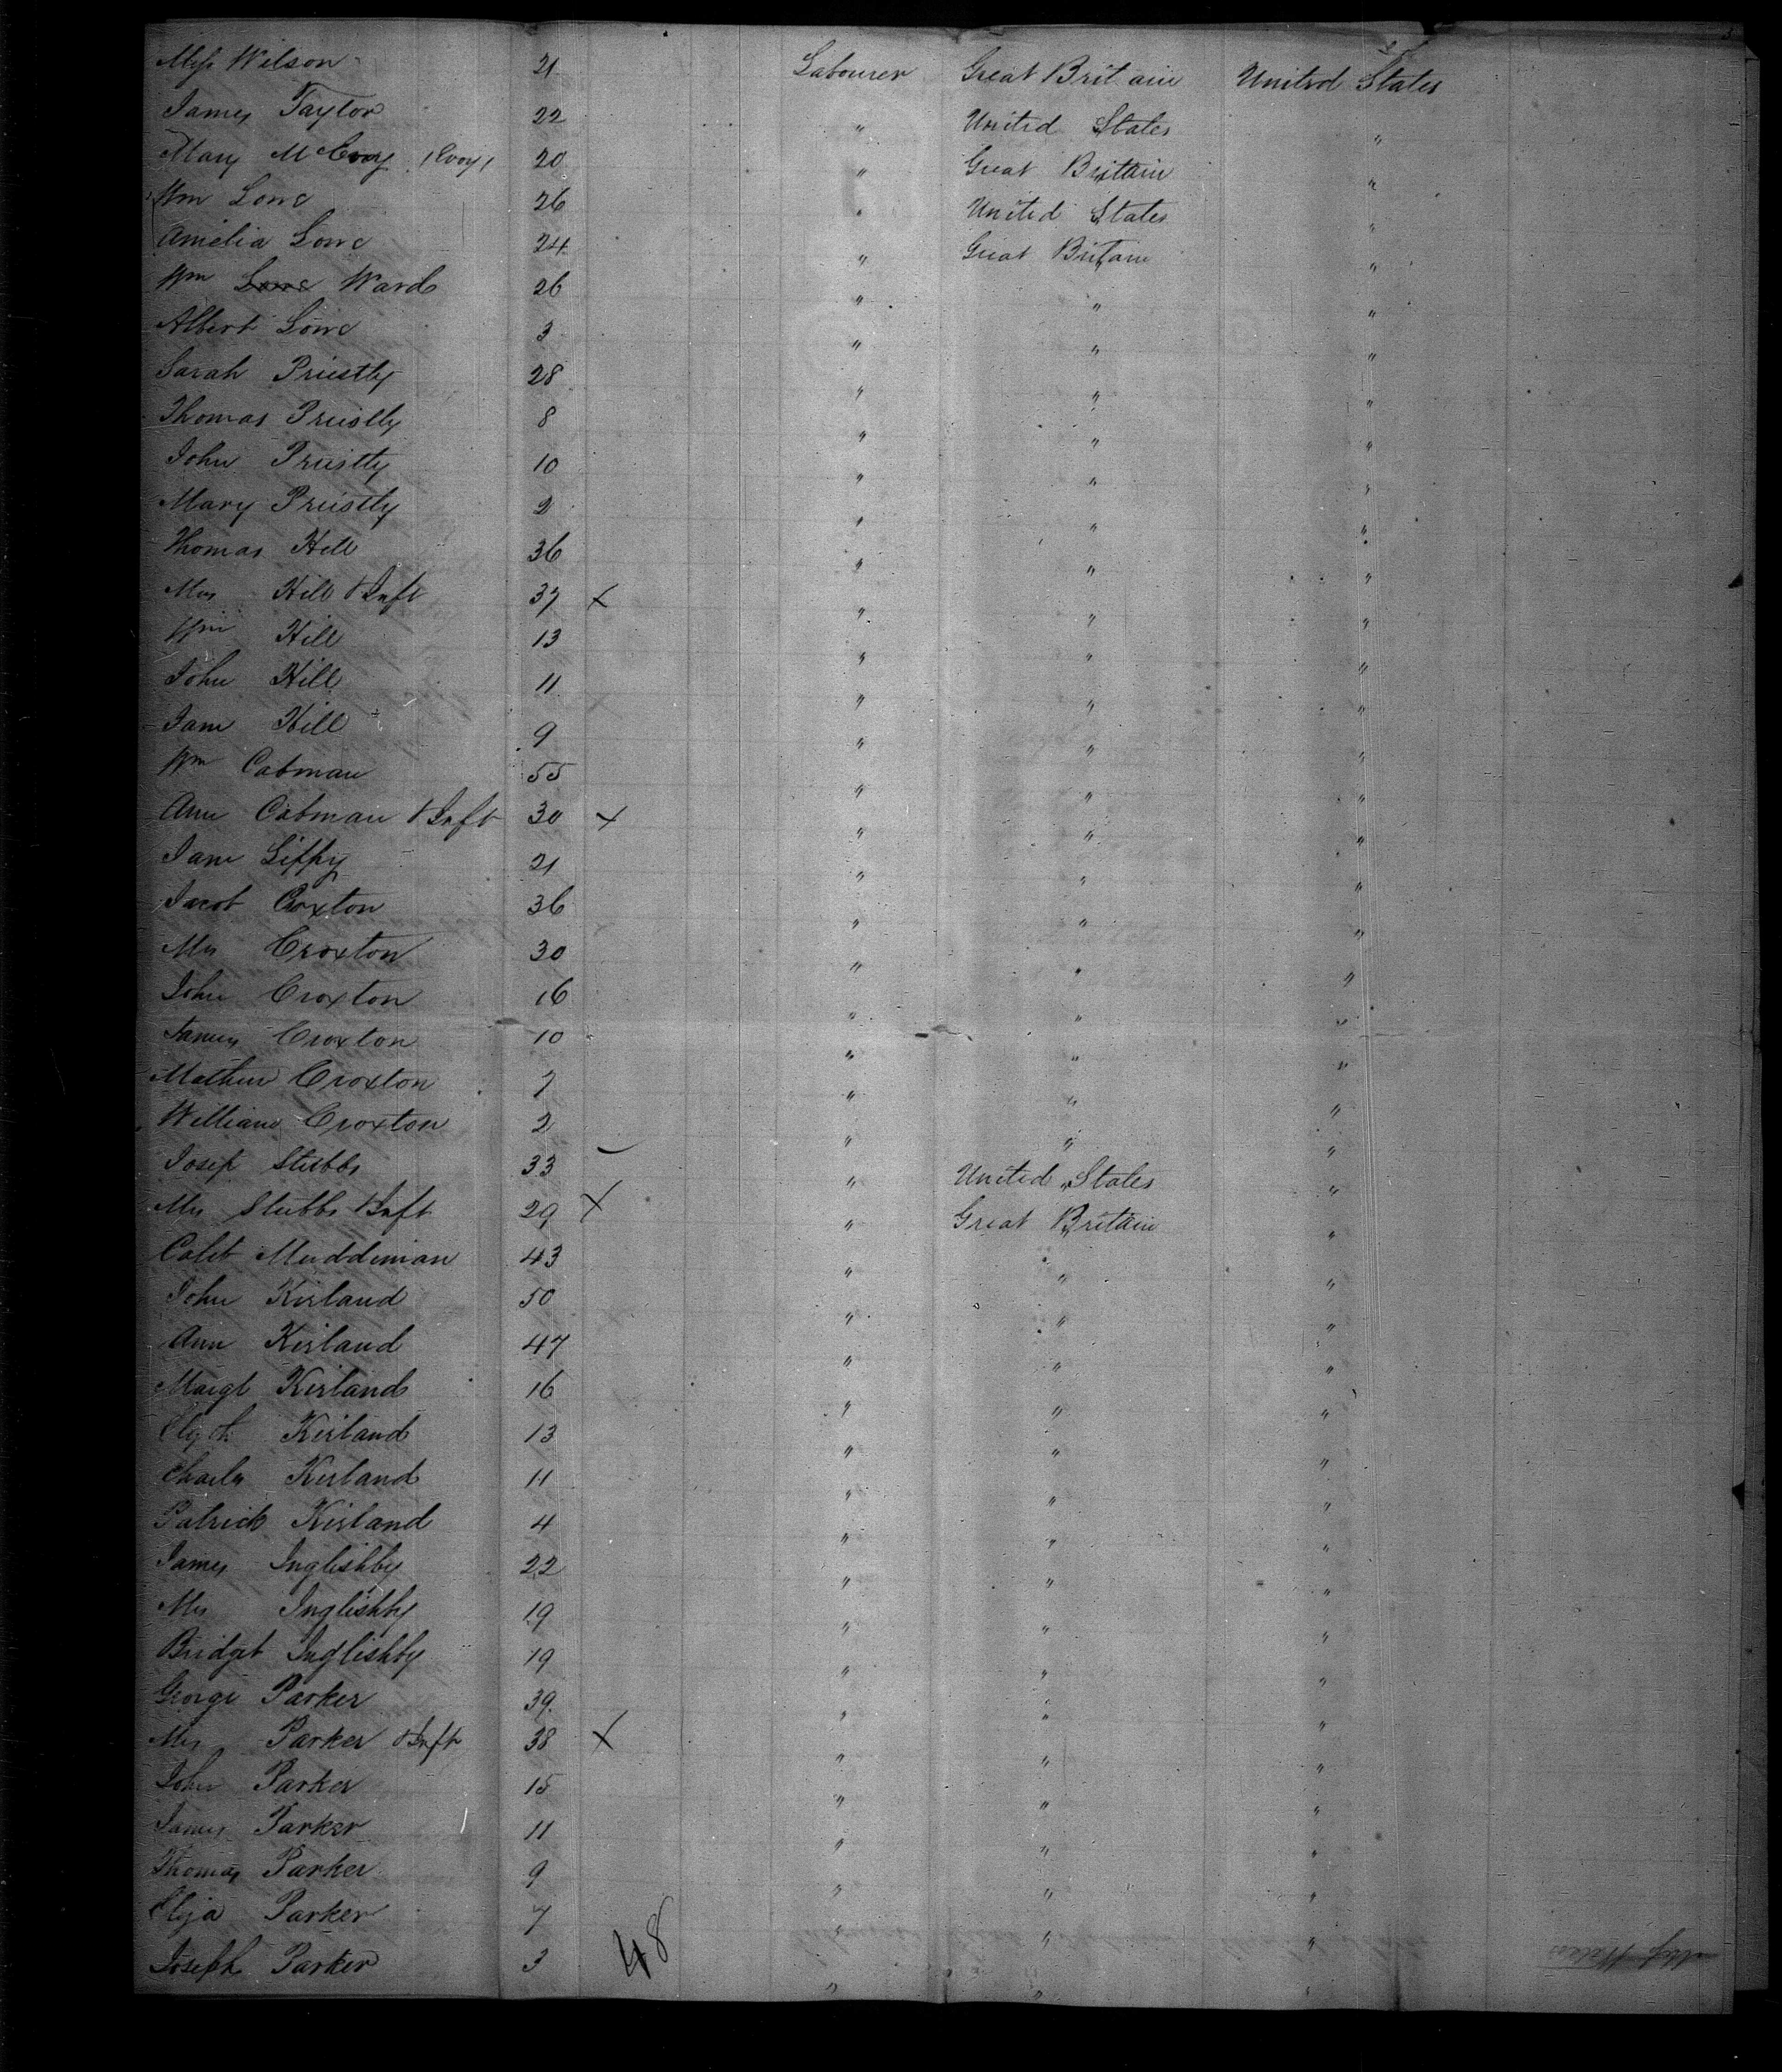 Miss Wilson 21 Labourer Great Britain United States
James Taylor 22 " United States "
Mary McEvoy (Evoy) 20 " Great Britain "
Wm Lowe 26 " United States "
Amelia Lowe 24 " Great Britain "
Wm Lowe Ward 26 " " "
Albert Lowe 3 " " "
Sarah Priestly 28 " " "
Thomas Priestly 8 " " "
John Priestly 10 " " "
Mary Priestly 2 " " "
Thomas Hill 36 " " "
Mrs Hill & Inft 37 x " " "
Wm Hill 13 " " "
John Hill 11 " " "
Jane Hill 9 " " "
Wm Cabman 55 " " "
Ann Cabman & Inft 30 x " " "
Jane Lippy 21 " " "
Jacob Croxton 36 " " "
Mrs Croxton 30 " " "
John Croxton 16 " " "
James Croxton 10 " " "
Mathew Croxton 7 " " "
William Croxton 2 " " "
Josep Stubbs 33 " United States "
Mrs Stubbs & Inft 29 x " Great Britain "
Caleb Muddiman 43 " " "
John Kirland 50 " " "
Ann Kirland 47 " " "
Margt Kirland 16 " " "
Kirland 13 " " "
Charles Kirland 11 " " "
Patrick Kirland 4 " " "
James Inglishby 22 " " "
Mrs Inglishby 19 " " "
Bridget Inglishby 19 " " "
George Parker 39 " " "
Mrs Parker & Inft 38 x " " "
John Parker 15 " " "
James Parker 11 " " "
Thomas Parker 9 " " "
Eliza Parker 7 " " "
Joseph Parker 3 " " "
48